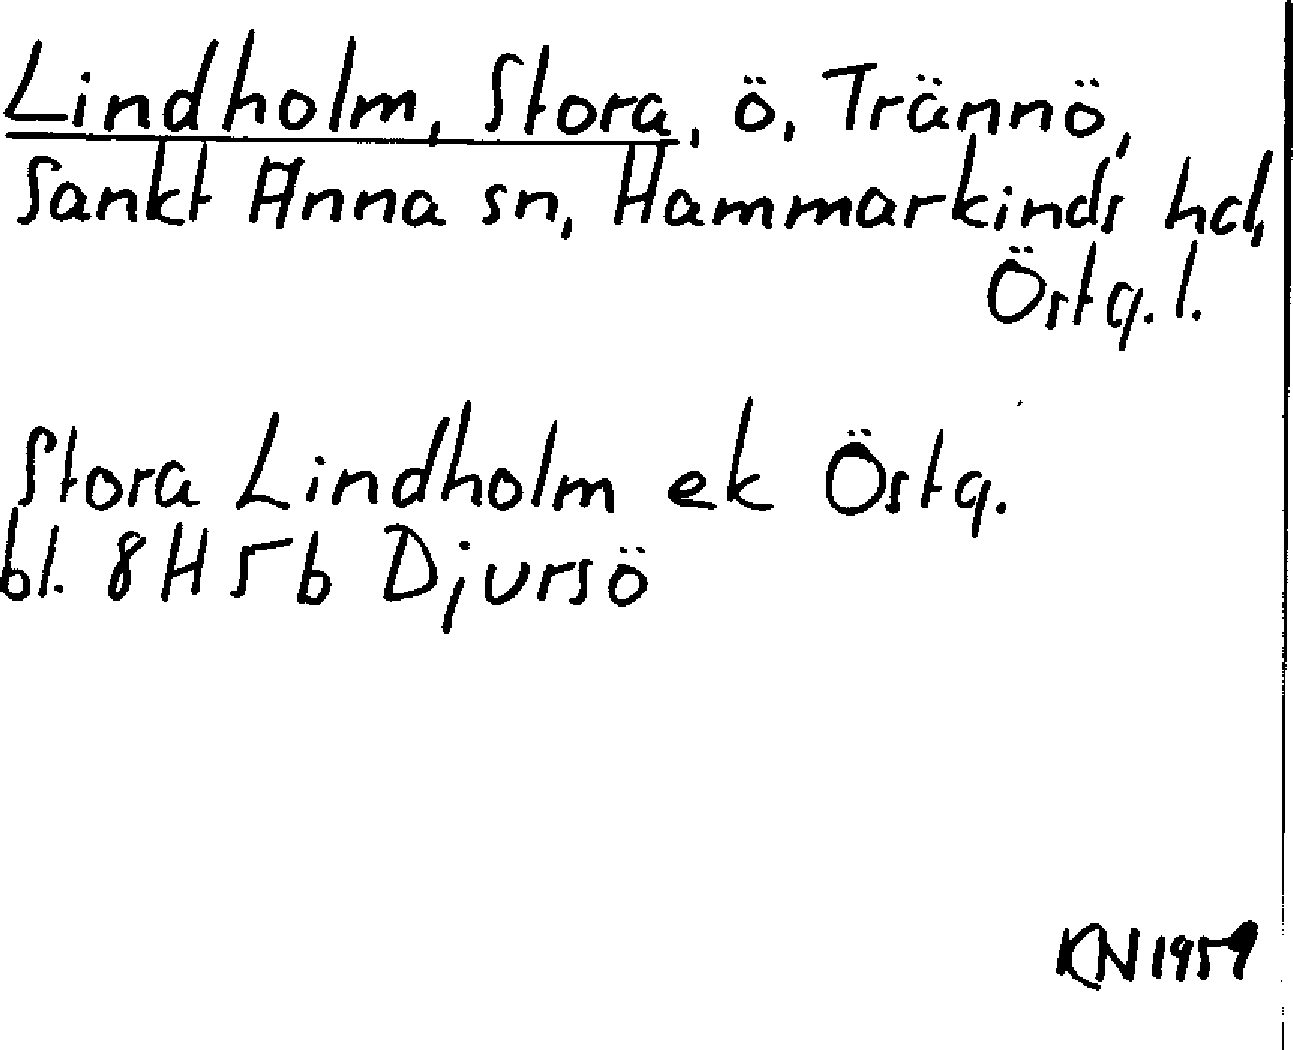 Lindholm, Stora, ö, Trännö,
Sankt Anna sn, Hammarkinds hd,
Östg. l.
Stora Lindholm ek Östg.
bl. 8H 5b Djursö
KN 1959